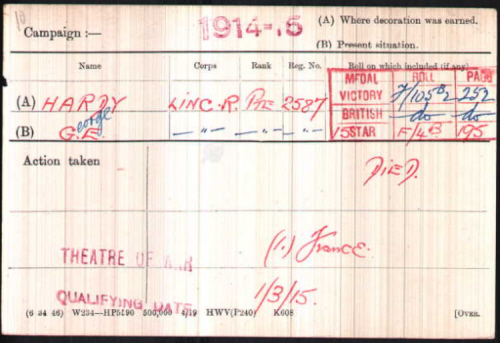 10
Campaign :—
1914-15
(A) Where decoration was earned.
(B) Present situation.
Name Corps Rank Reg. No. Roll on which included (if any)
MEDAL ROLL PAGE
(A) HARDY LINC.R. PTE 2587 VICTORY F/105B2 252
BRITISH do do
(B) G.E. George — " — — " — — " — 15 STAR F/4B 195
Action taken
DIED.
THEATRE OF WAR (1.) France.
QUALIFYING DATE 1/3/15.
(6 34 46) W234—HP5190 500,000 4/19 HWV(P240) K608 [OVER.